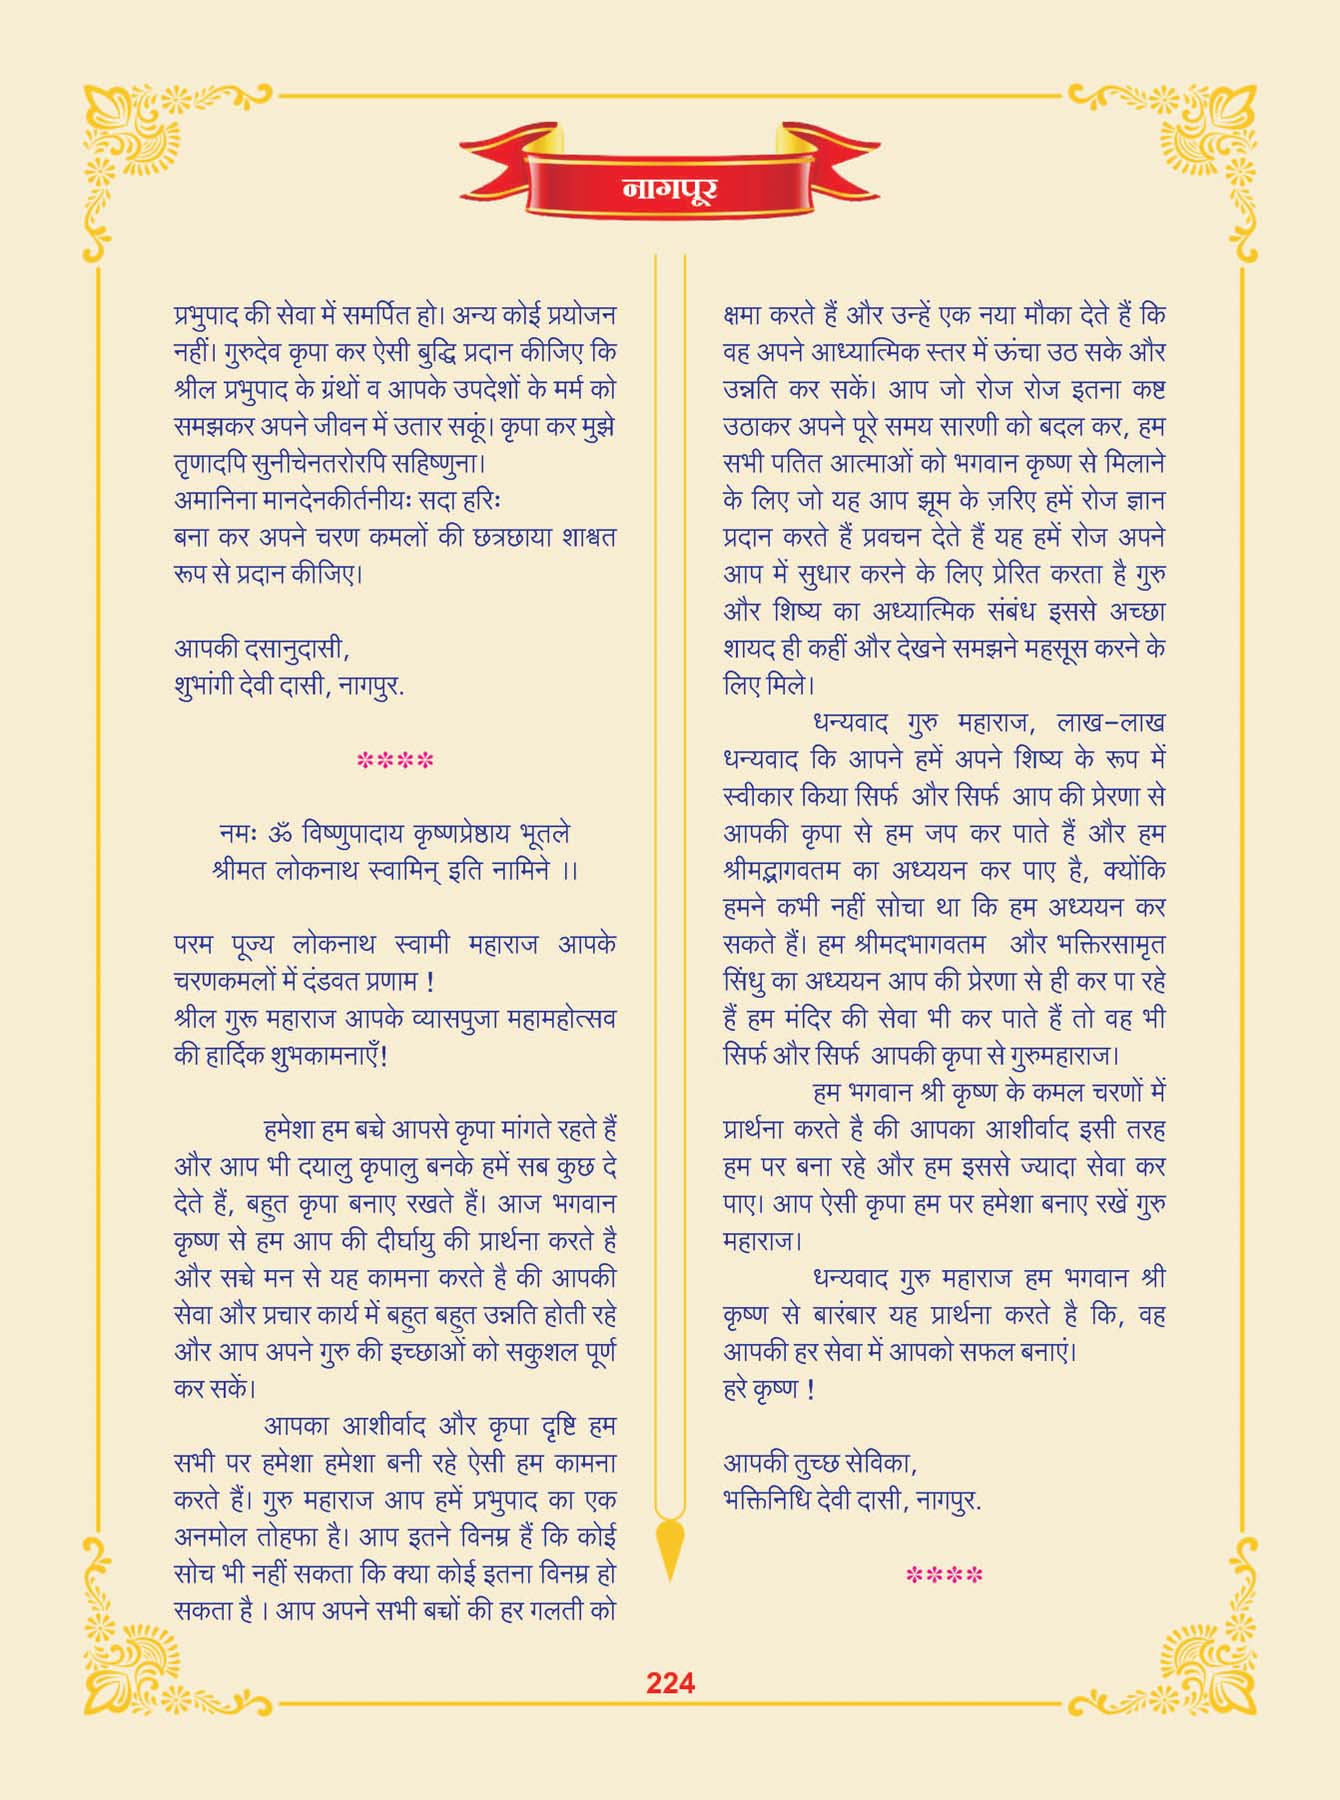 नागपूर
प्रभुपाद की सेवा में समर्पित हो। अन्य कोई प्रयोजन
नहीं। गुरुदेव कृपा कर ऐसी बुद्धि प्रदान कीजिए कि
श्रील प्रभुपाद के ग्रंथों व आपके उपदेशों के मर्म को
समझकर अपने जीवन में उतार सकूं। कृपा कर मुझे
तृणादपि सुनीचेनतरोरपि सहिष्णुना।
अमानिना मानदेनकीर्तनीयः सदा हरिः
बना कर अपने चरण कमलों की छत्रछाया शाश्वत
रूप से प्रदान कीजिए।
आपकी दसानुदासी,
शुभांगी देवी दासी, नागपुर.
****
नमः ॐ विष्णुपादाय कृष्णप्रेष्ठाय भूतले
श्रीमत लोकनाथ स्वामिन् इति नामिने ।।
परम पूज्य लोकनाथ स्वामी महाराज आपके
चरणकमलों में दंडवत प्रणाम !
श्रील गुरू महाराज आपके व्यासपुजा महामहोत्सव
की हार्दिक शुभकामनाएँ!
हमेशा हम बच्चे आपसे कृपा मांगते रहते हैं
और आप भी दयालु कृपालु बनके हमें सब कुछ दे
देते हैं, बहुत कृपा बनाए रखते हैं। आज भगवान
कृष्ण से हम आप की दीर्घायु की प्रार्थना करते है
और सच्चे मन से यह कामना करते है की आपकी
सेवा और प्रचार कार्य में बहुत बहुत उन्नति होती रहे
और आप अपने गुरु की इच्छाओं को सकुशल पूर्ण
कर सकें।
आपका आशीर्वाद और कृपा दृष्टि हम
सभी पर हमेशा हमेशा बनी रहे ऐसी हम कामना
करते हैं। गुरु महाराज आप हमें प्रभुपाद का एक
अनमोल तोहफा है। आप इतने विनम्र हैं कि कोई
सोच भी नहीं सकता कि क्या कोई इतना विनम्र हो
सकता है । आप अपने सभी बच्चों की हर गलती को
क्षमा करते हैं और उन्हें एक नया मौका देते हैं कि
वह अपने आध्यात्मिक स्तर में ऊंचा उठ सके और
उन्नति कर सकें। आप जो रोज रोज इतना कष्ट
उठाकर अपने पूरे समय सारणी को बदल कर, हम
सभी पतित आत्माओं को भगवान कृष्ण से मिलाने
के लिए जो यह आप झूम के ज़रिए हमें रोज ज्ञान
प्रदान करते हैं प्रवचन देते हैं यह हमें रोज अपने
आप में सुधार करने के लिए प्रेरित करता है गुरु
और शिष्य का अध्यात्मिक संबंध इससे अच्छा
शायद ही कहीं और देखने समझने महसूस करने के
लिए मिले।
धन्यवाद गुरु महाराज, लाख-लाख
धन्यवाद कि आपने हमें अपने शिष्य के रूप में
स्वीकार किया सिर्फ और सिर्फ आप की प्रेरणा से
आपकी कृपा से हम जप कर पाते हैं और हम
श्रीमद्भागवतम का अध्ययन कर पाए है, क्योंकि
हमने कभी नहीं सोचा था कि हम अध्ययन कर
सकते हैं। हम श्रीमदभागवतम और भक्तिरसामृत
सिंधु का अध्ययन आप की प्रेरणा से ही कर पा रहे
हैं हम मंदिर की सेवा भी कर पाते हैं तो वह भी
सिर्फ और सिर्फ आपकी कृपा से गुरुमहाराज।
हम भगवान श्री कृष्ण के कमल चरणों में
प्रार्थना करते है की आपका आशीर्वाद इसी तरह
हम पर बना रहे और हम इससे ज्यादा सेवा कर
पाए। आप ऐसी कृपा हम पर हमेशा बनाए रखें गुरु
महाराज।
धन्यवाद गुरु महाराज हम भगवान श्री
कृष्ण से बारंबार यह प्रार्थना करते है कि, वह
आपकी हर सेवा में आपको सफल बनाएं।
हरे कृष्ण !
आपकी तुच्छ सेविका,
भक्तिनिधि देवी दासी, नागपुर.
****
224